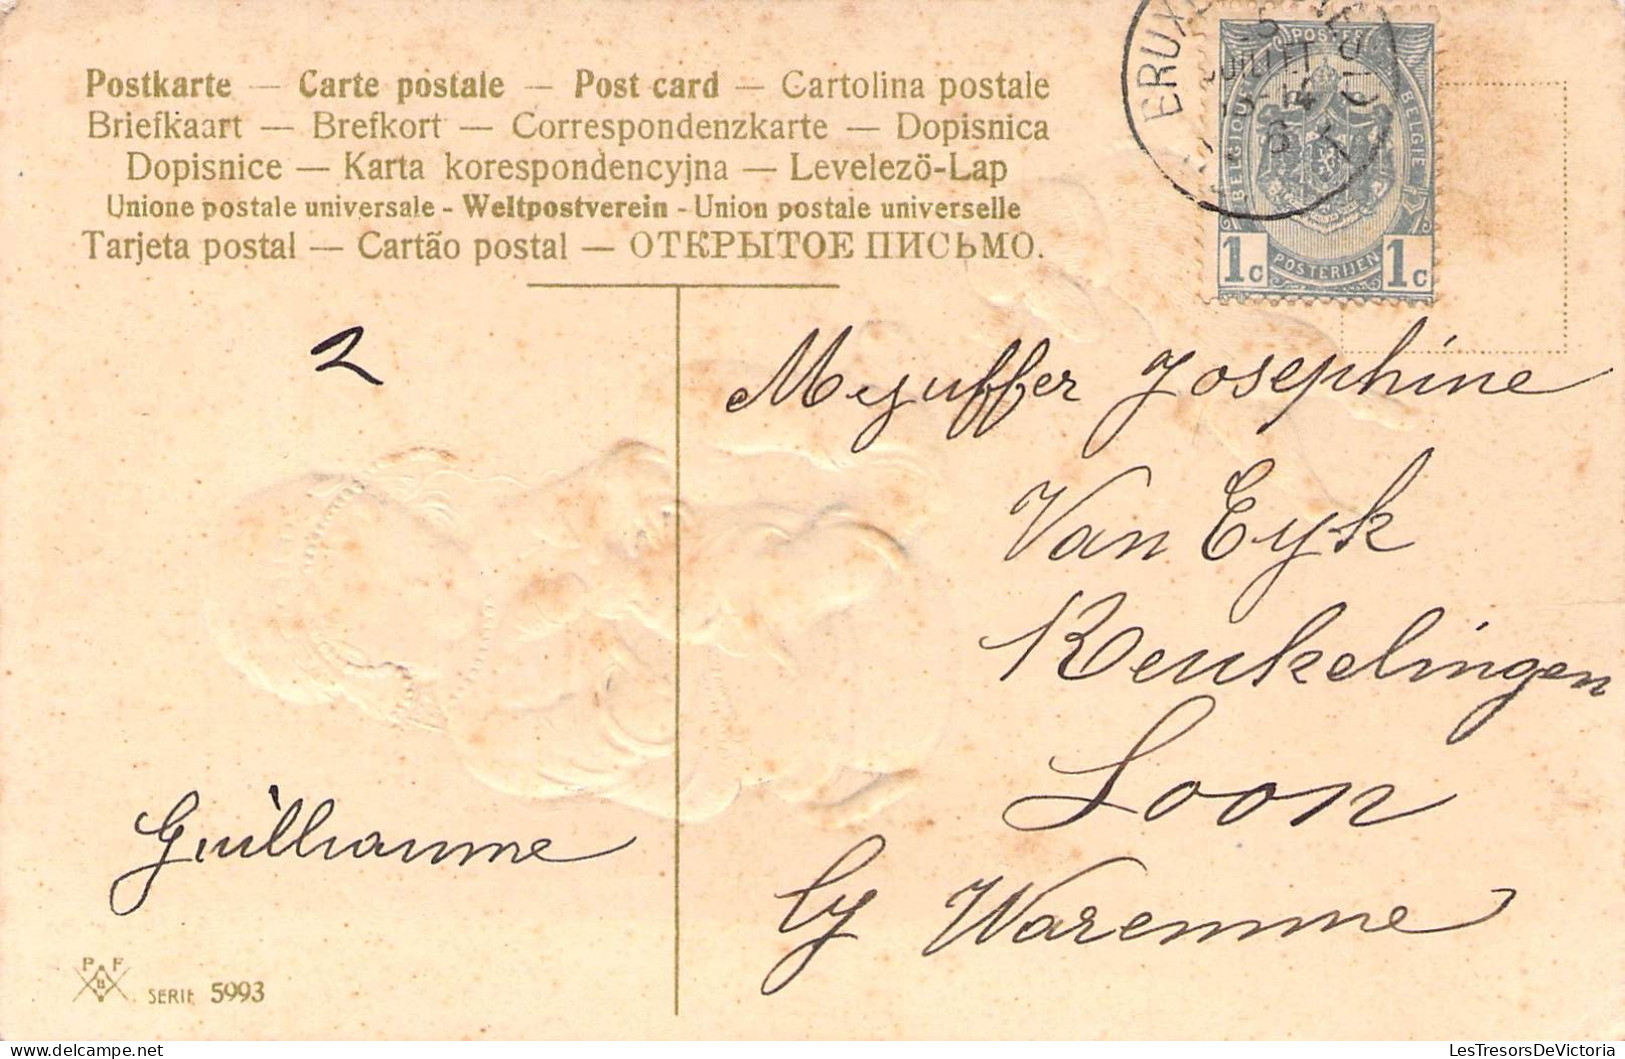 Postkarte — Carte postale — Post card — Cartolina postale
Briefkaart — Brefkort — Correspondenzkarte — Dopisnica
Dopisnice — Karta korespondencyjna — Levelezö-Lap
Unione postale universale - Weltpostverein - Union postale universelle
Tarjeta postal — Cartão postal — ОТКРЫТОЕ ПИСЬМО.
POSTES
BELGIQUE
BELGIË
POSTERIJEN
1c 1c
2
Mejuffer Josephine
Van Eyk
Keukelingen
Loon
by Waremme
Guillaume
P F
B
SERIE 5993
delcampe.net
LesTresorsDeVictoria